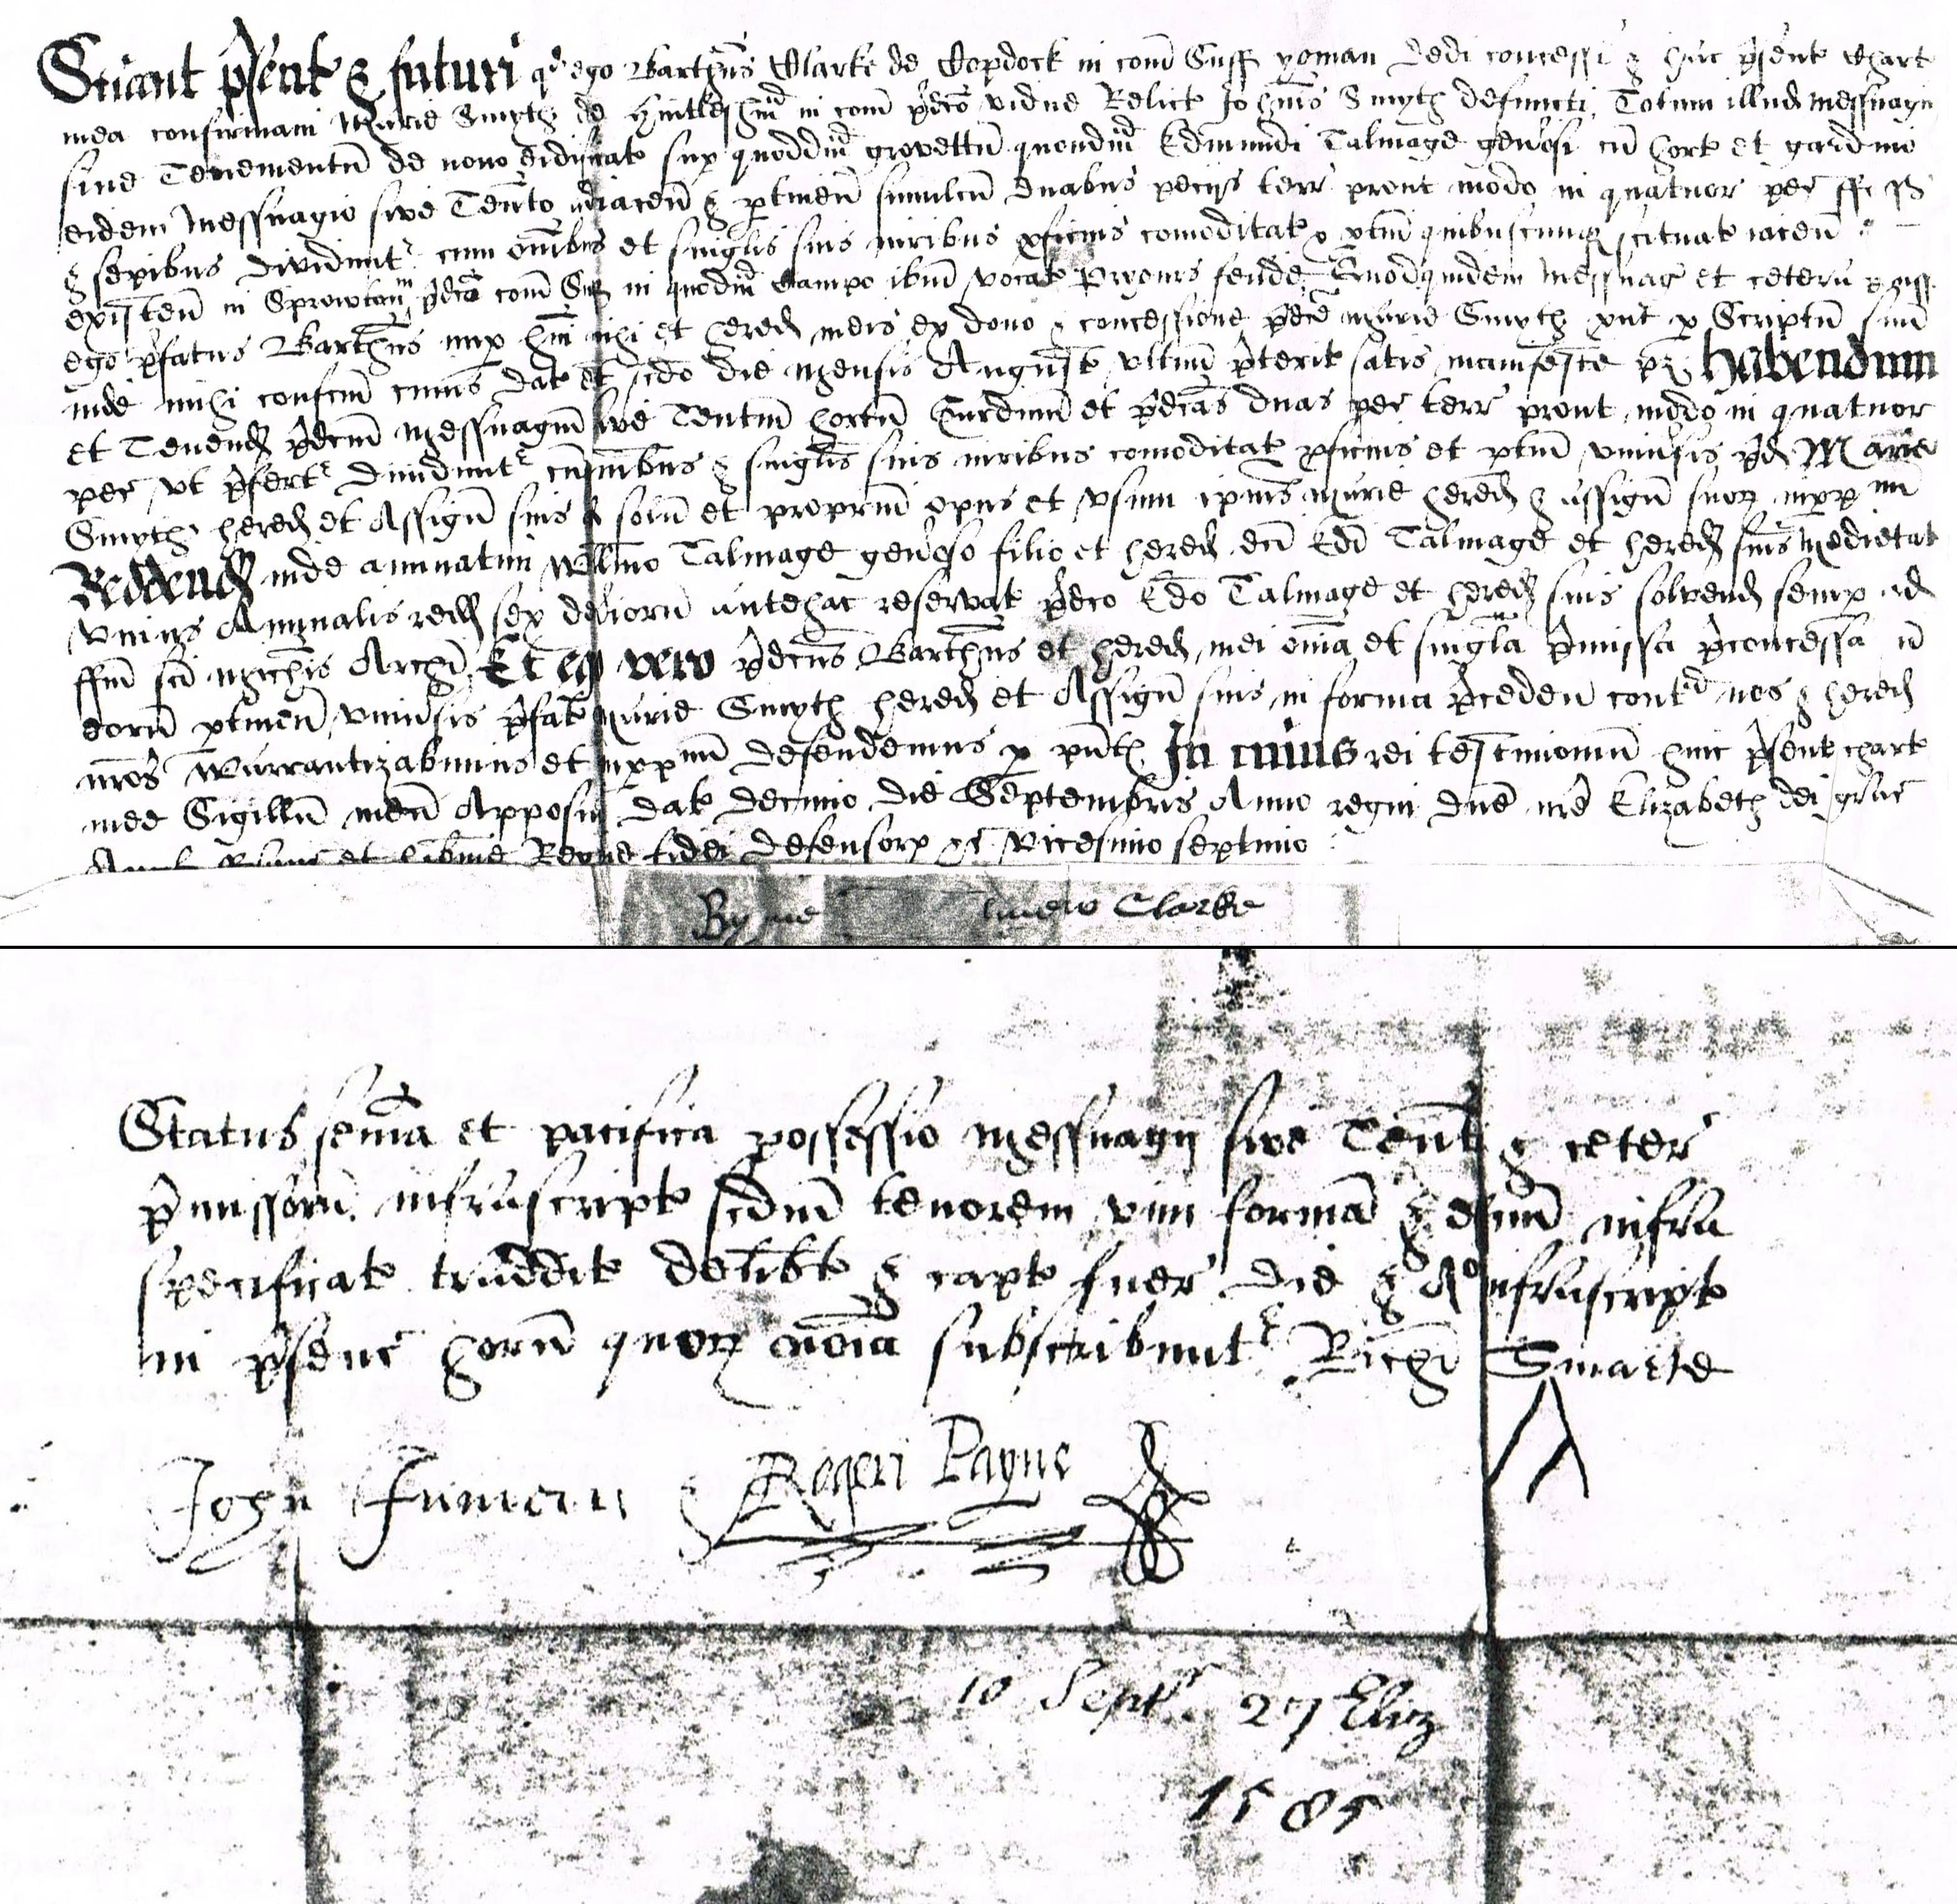 Sciant p'sent & futuri qd ego Barthus Clarke de Copdock in com Suff yoman dedi concessi & hac p'sent Chart
mea confirmavi Marie Smyth de Hintlesham in com p'dco vidue Relict Johnis Smyth defuncti Totum illud messuagiu
sive Tenementu de novo edificat sup quoddam grovettu quondam Edmundi Talmage gen'osi cu hort et gardino
eidem messuagio sive Tento adiacen & ptinen simulcu duabus pecijs terr prout modo in quatuor pec
& sepibus dividunt' cum omibus et singlis suis iuribus pficuis comoditat & ptin quibuscunq scituat iacen &
existen in Sprowton p'dca com Suff in quodam Campo ibm vocat Pryours feilde Quodquidem messuag et ceteru
ego p'fatus Barthus nup hui mihi et hered meis ex dono & concessione p'dce Marie Smyth put p Scriptu suu
inde mihi confcm cuius dat est scdo die mensis August ultim p'terit satis manifeste pz Habendum
et Tenend p'dcum messuagium sive Tentm hortu Gardinu et p'dcas duas pec terr prout modo in quatuor
pec ut p'fert' dividunt' cu omibus & singlis suis iuribus comoditat pficuis et ptin univsis p'd Marie
Smyth hered et Assign suis ad solu et propriu opus et usum ipius Marie hered & assign suor imppm
Reddend inde annuatim Willmo Talmage gen'oso filio et hered dci Edi Talmage et hered suis medietat
unius Annualis redd sex deniorum antehac reservat p'dco Edo Talmage et hered suis solvend semp ad
ffm sci Michis Archi Et ego vero p'dcus Barthus et hered mei omia et singla p'missa p'concessa cu
eorum ptinen univsis p'fat Marie Smyth hered et Assign suis in forma p'ceden contra nos & hered
nros Warrantizabimus et imppm defendemus p pntes In cuius rei testimonium huic p'sent chart
mee Sigillu meu Apposui dat decimo die Septembris Anno regni dne nre Elizabeth dei grac
Angl Franc et hibnie Regine fidei defensor &c vicesimo septimo
By me Clarke
Status seisina et pacifica possessio messuagij sive Tent & ceter
p'missoru infrascript scdm tenorem vim forma & effcum infra
specificat traddit delibat & capt fuer die & Ao infrascript
in p'senc horu quor noia subscribunt' Richi Smarte
John Rogeri Payne
10 Sept. 27 Eliz
1585